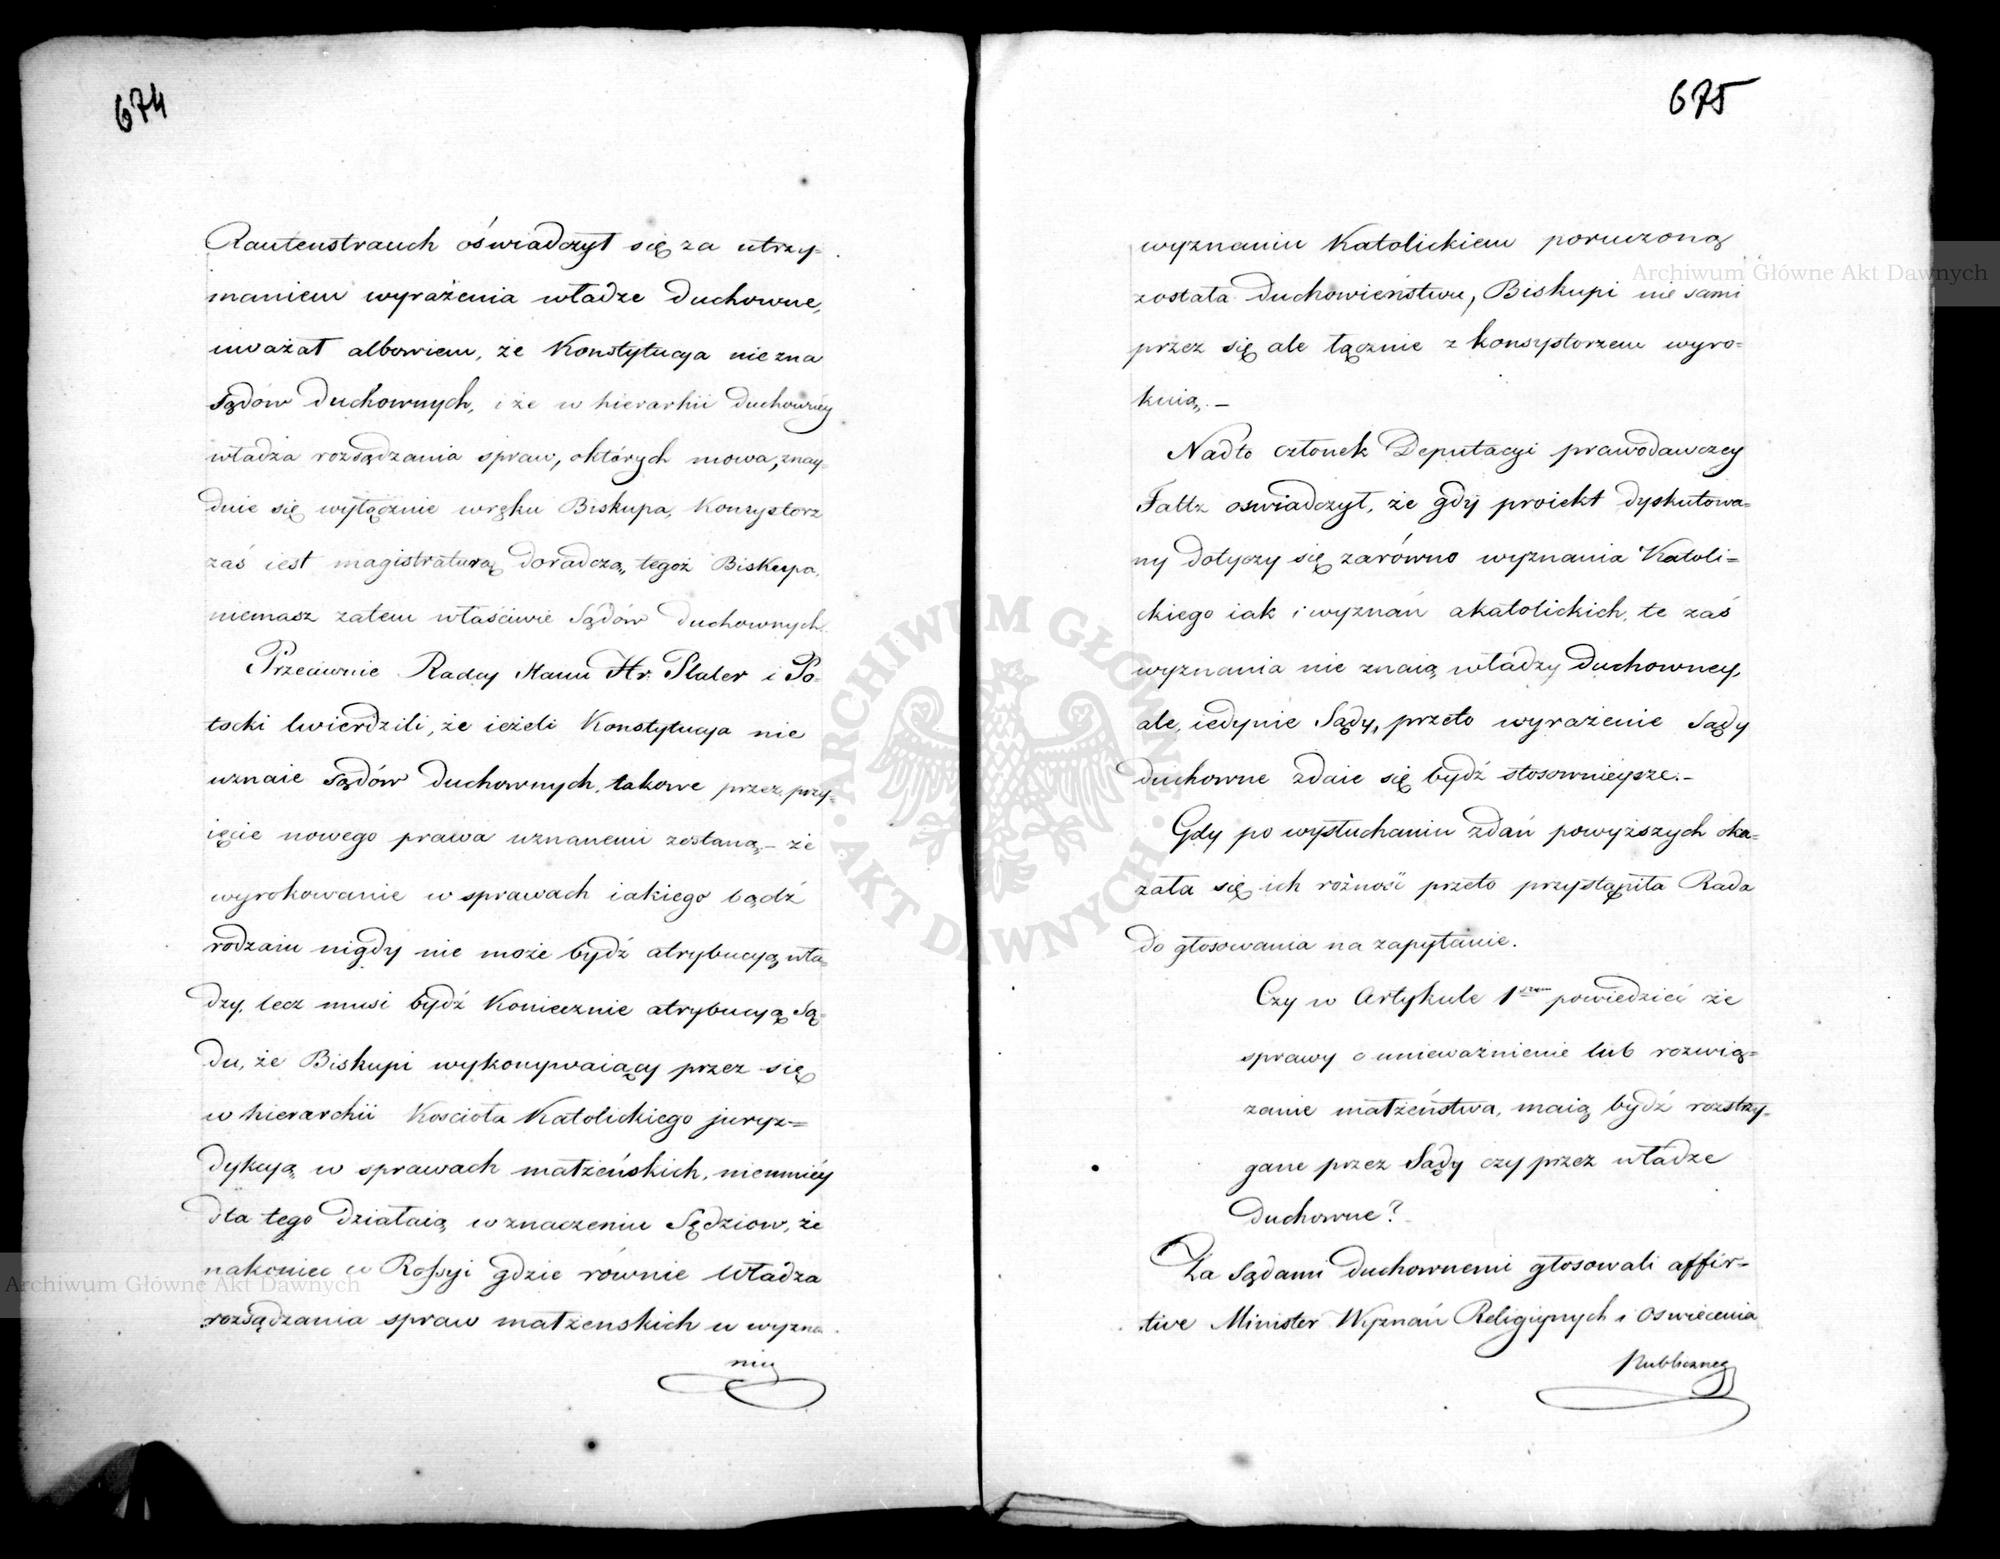 674
Rautenstrauch oświadczył się za utrzy=
maniem wyrażenia władze duchowne,
uważał albowiem, że Konstytucya nie zna
Sądów duchownych, i że w hierarhii duchowney
władza rozsądzania spraw, o których mowa, znay=
duie się wyłącznie w ręku Biskupa, Konsystorz
zaś iest magistraturą doradczą, tegoż Biskupa,
niemasz zatem właściwie Sądów duchownych.
Przeciwnie Radcy Stanu Hr. Plater i Po=
tocki twierdzili, że ieżeli Konstytucya nie
uznaie Sądów duchownych, takowe przez przy=
ięcie nowego prawa uznanemi zostaną, – że
wyrokowanie w sprawach iakiego bądź
rodzaiu nigdy nie może bydź atrybucyą wła=
dzy, lecz musi bydź Koniecznie atrybucyą Są=
du, że Biskupi wykonywaiący przez się
w hierarchii Kościoła Katolickiego juryz=
dykcyą w sprawach małżeńskich, niemniéy
dla tego działaią w znaczeniu Sędziow, że
nakoniec w Rossyi gdzie równie Władza
rozsądzania spraw małżenskich w wyzna
niu
675
wyznaniu Katolickiem poruczoną
została duchowieństwu, Biskupi nie sami
przez się ale łącznie z konsystorzem wyro=
kuią. –
Nadto członek Deputacyi prawodawczey
Faltz oswiadczył, że gdy proiekt dyskutowa=
ny dotyczy się zarówno wyznania Katoli=
ckiego iak i wyznań akatolickich, te zaś
wyznania nie znaią władzy duchowney,
ale, iedynie Sądy, przeto wyrażenie Sądy
duchowne zdaie się bydź stosownieysze. –
Gdy po wysłuchaniu zdań powyższych oka=
zała się ich różność przeto przystąpiła Rada
do głosowania na zapytanie.
Czy w Artykule 1szym powiedzieć że
sprawy o unieważnienie lub rozwią=
zanie małżeństwa, maią bydź rozstrzy=
gane przez Sądy czy przez władze
duchowne?
Za Sądami duchownemi głosowali affir=
tive Minister Wyznań Religiynych i Oswiecenia
Publicznego
Archiwum Główne Akt Dawnych
Archiwum Główne Akt Dawnych
ARCHIWUM GŁÓWNE · AKT DAWNYCH ·